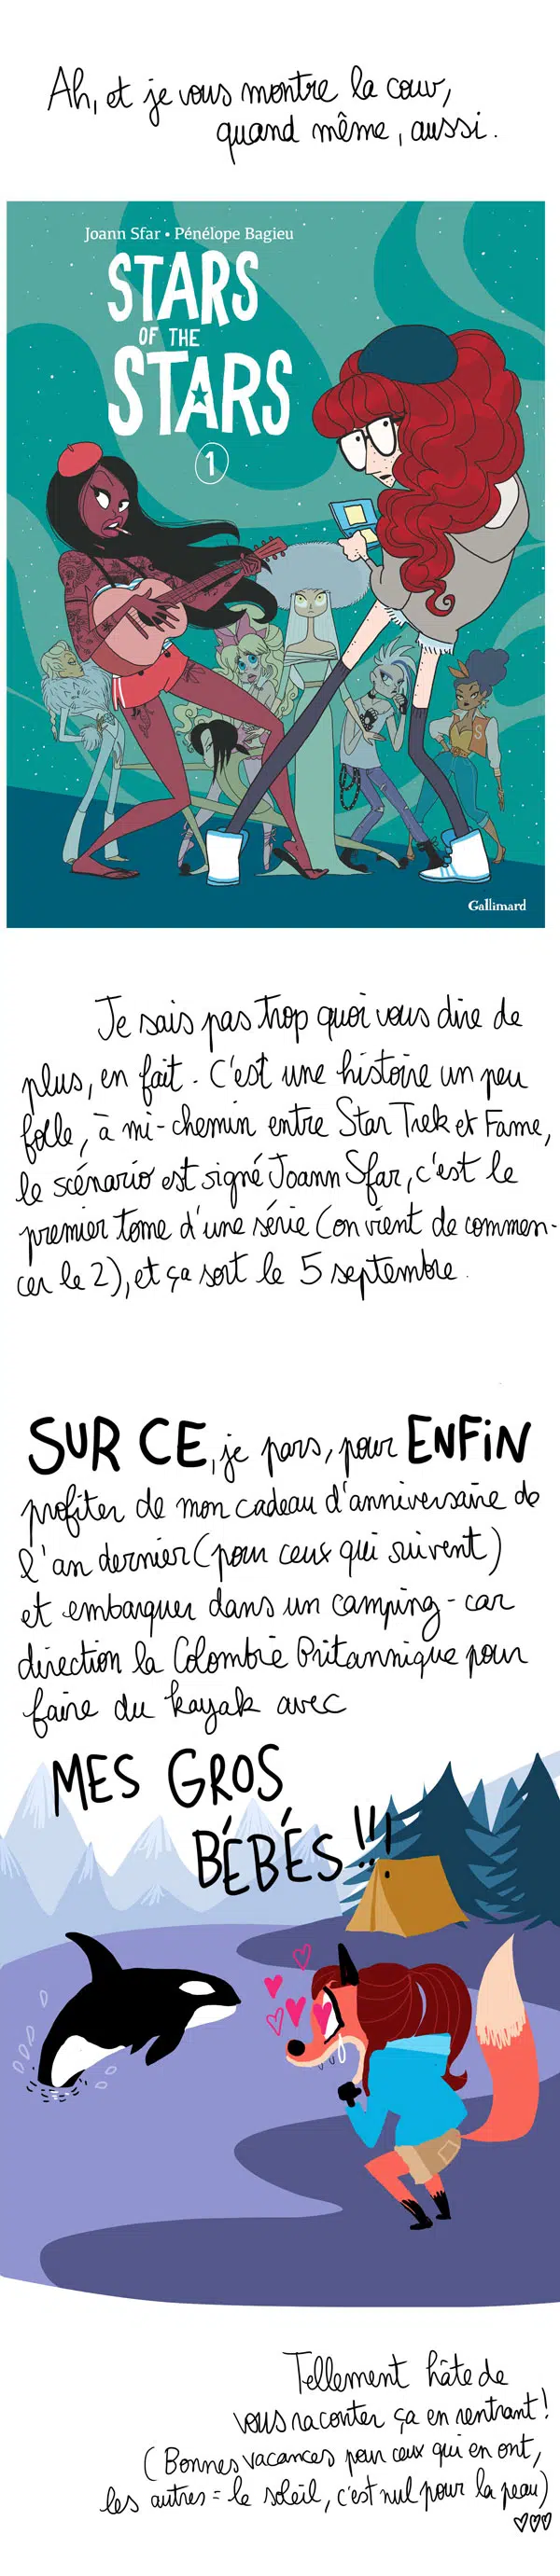 Ah, et je vous montre la couv,
quand même, aussi.
Joann Sfar • Pénélope Bagieu
STARS
OF THE
STARS
1
S
Gallimard
Je sais pas trop quoi vous dire de
plus, en fait. C'est une histoire un peu
folle, à mi-chemin entre Star Trek et Fame,
le scénario est signé Joann Sfar, c'est le
premier tome d'une série (on vient de commen-
cer le 2), et ça sort le 5 septembre.
SUR CE, je pars, pour ENFIN
profiter de mon cadeau d'anniversaire de
l'an dernier (pour ceux qui suivent)
et embarquer dans un camping-car
direction la Colombie Britannique pour
faire du kayak avec
MES GROS
BÉBÉS!!!
Tellement hâte de
vous raconter ça en rentrant!
(Bonnes vacances pour ceux qui en ont,
les autres = le soleil, c'est nul pour la peau)
♡♡♡